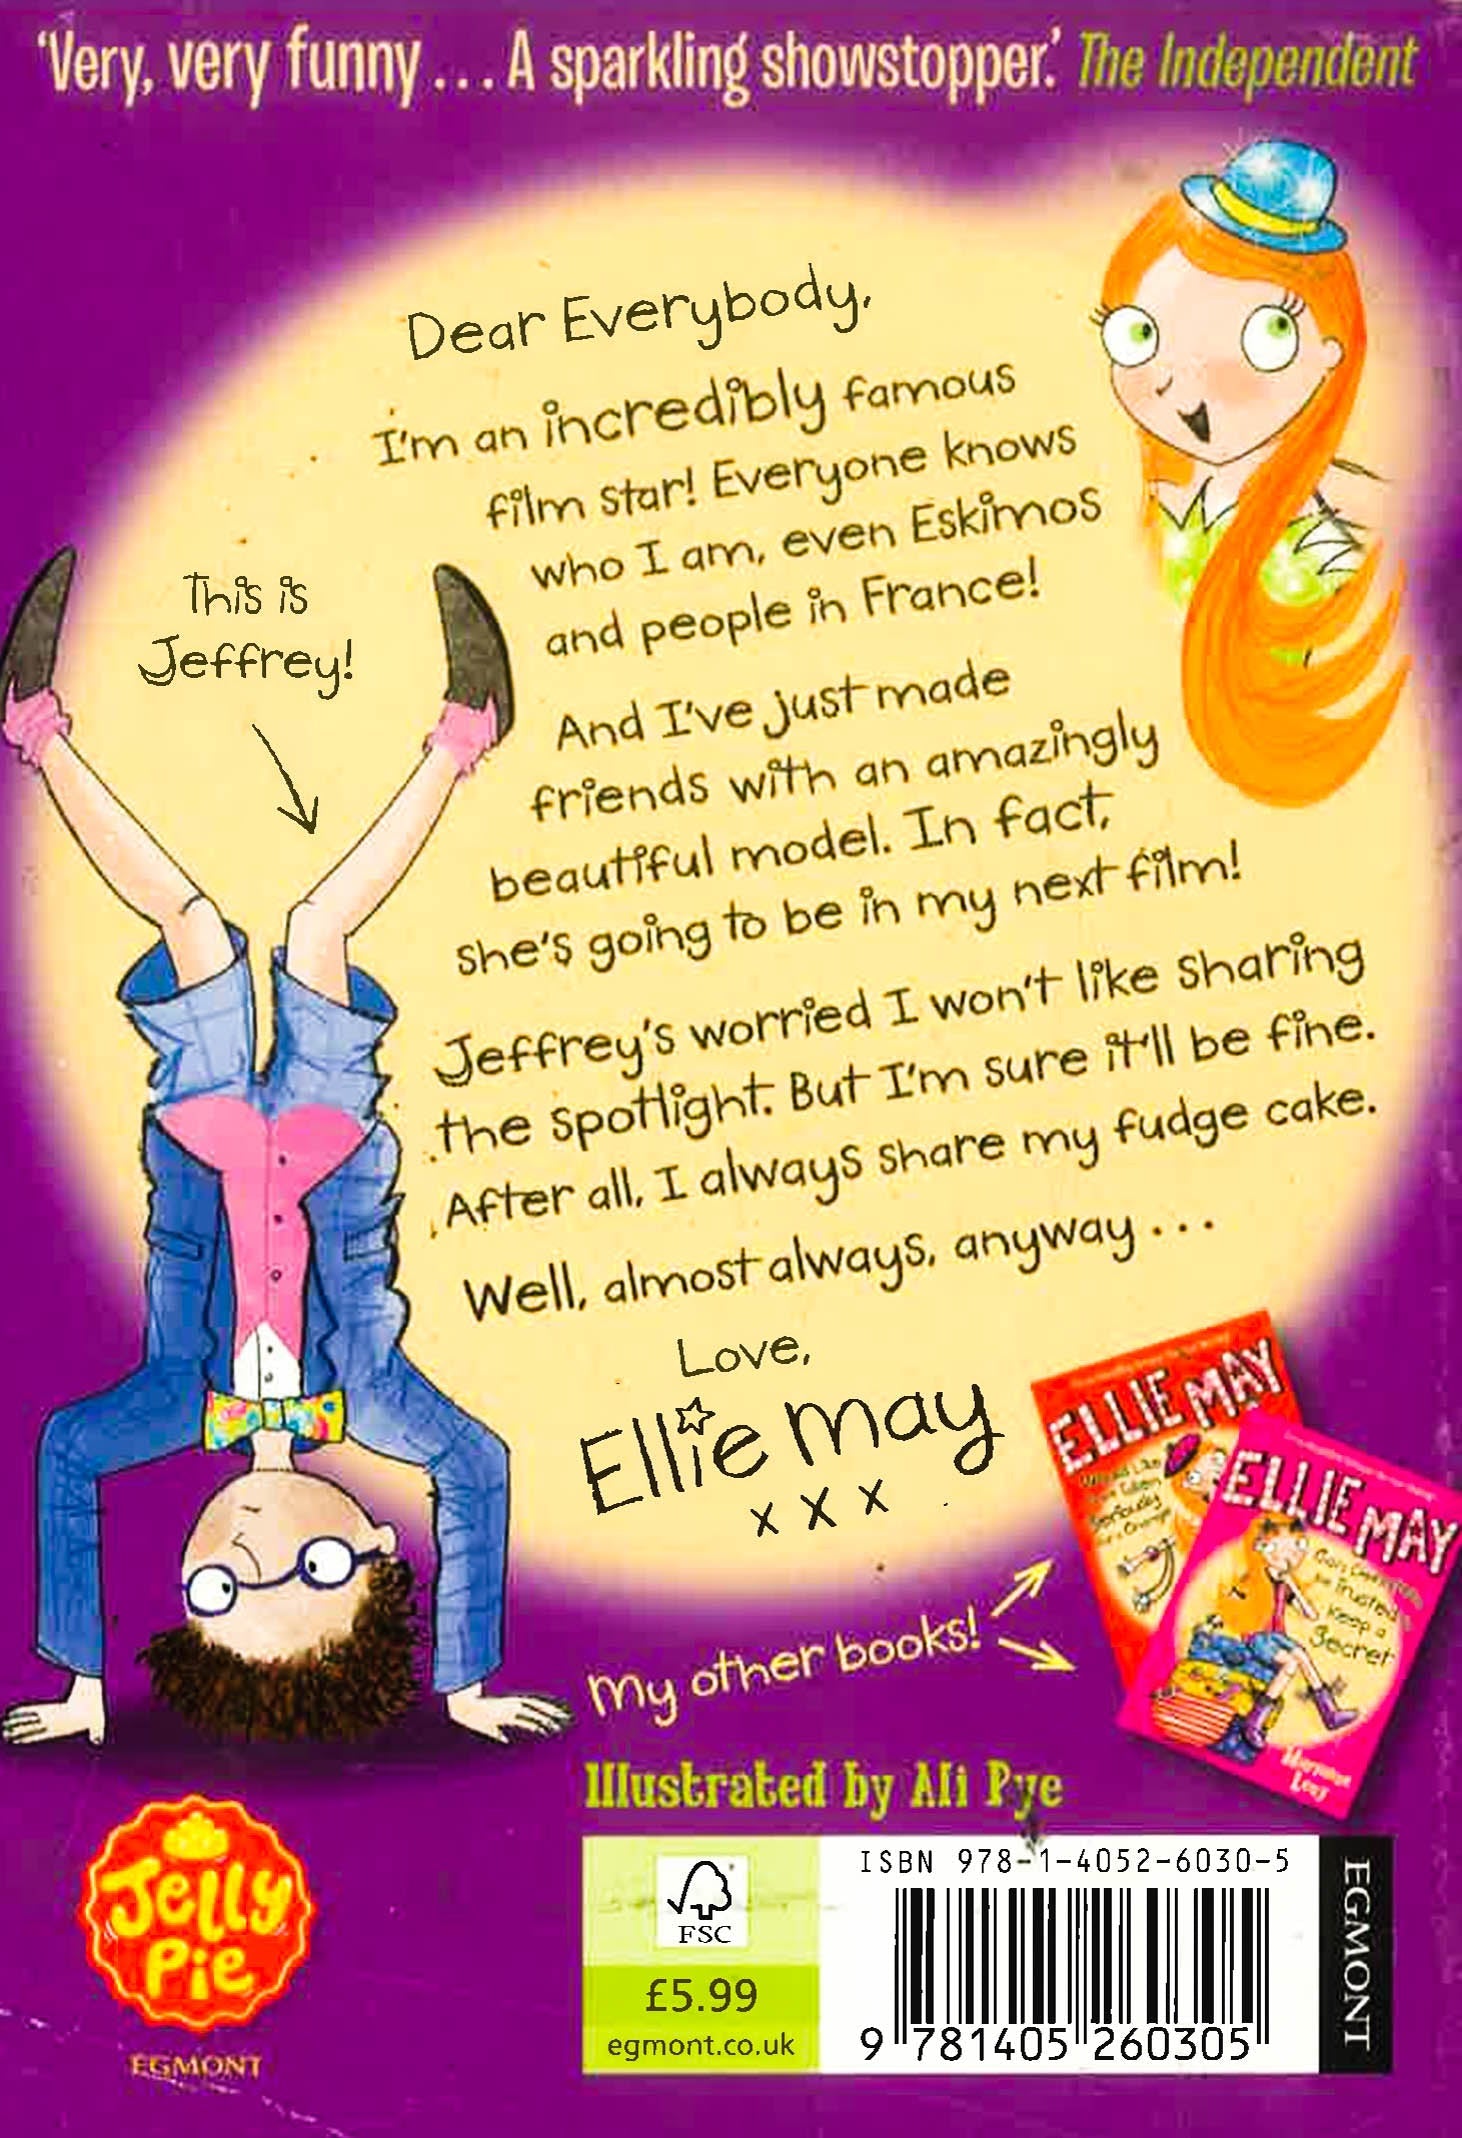 'Very, very funny ... A sparkling showstopper.' The Independent
Dear Everybody,
I'm an incredibly famous
film star! Everyone knows
who I am, even Eskimos
and people in France!
This is
Jeffrey!
And I've just made
friends with an amazingly
beautiful model. In fact,
she's going to be in my next film!
Jeffrey's worried I won't like sharing
the spotlight. But I'm sure it'll be fine.
After all, I always share my fudge cake.
Well, almost always, anyway ...
Love,
Ellie May
x x x
My other books!
ELLIE MAY
Would Like
to be Taken
Seriously
for a Change
ELLIE MAY
be Trusted
Keep a
Secret
Illustrated by Ali Pye
Jelly
Pie
EGMONT
FSC
£5.99
egmont.co.uk
ISBN 978-1-4052-6030-5
9 781405 260305
EGMONT